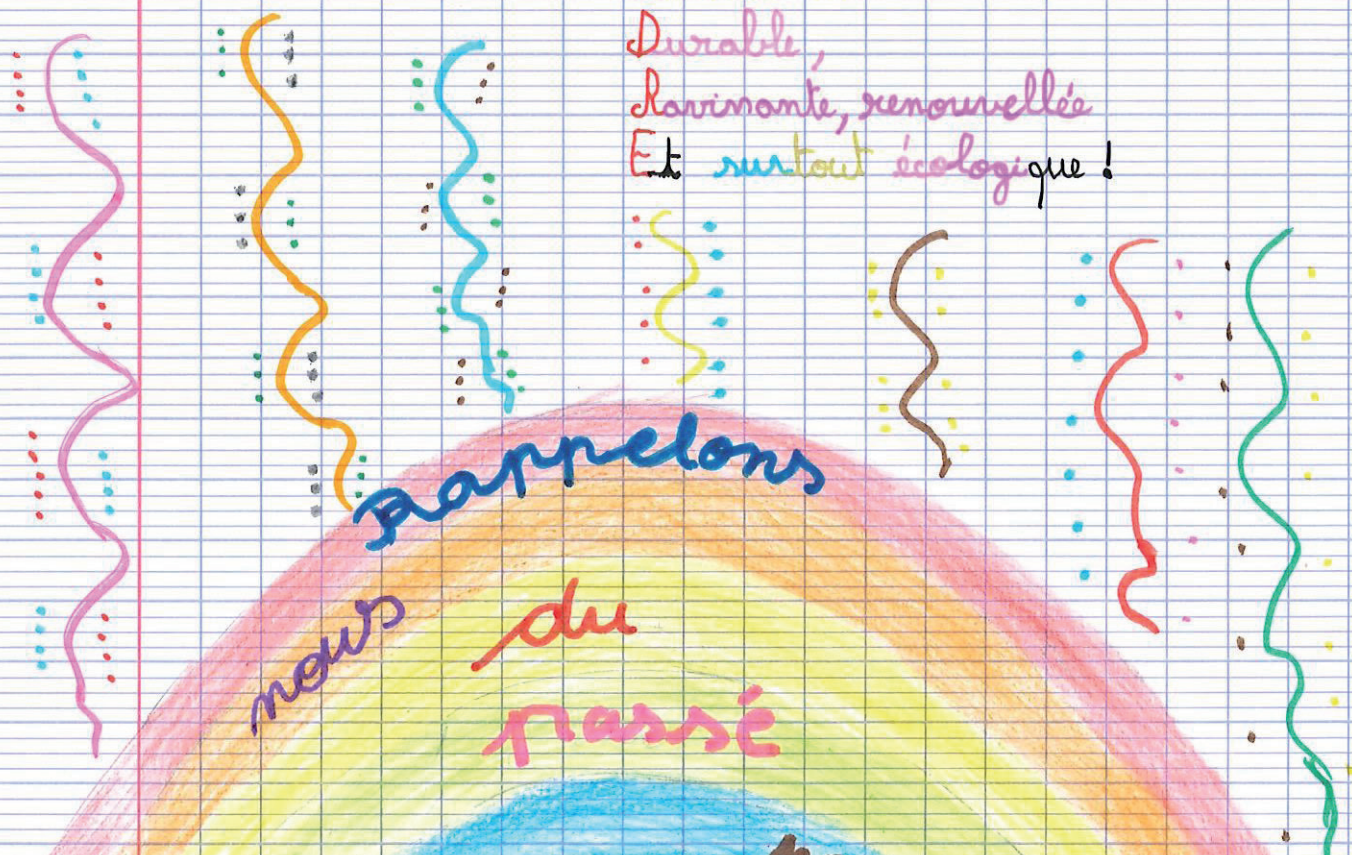 Durable,
Ravissante, renouvellée
Et surtout écologique !
Rappelons
nous
du
passé